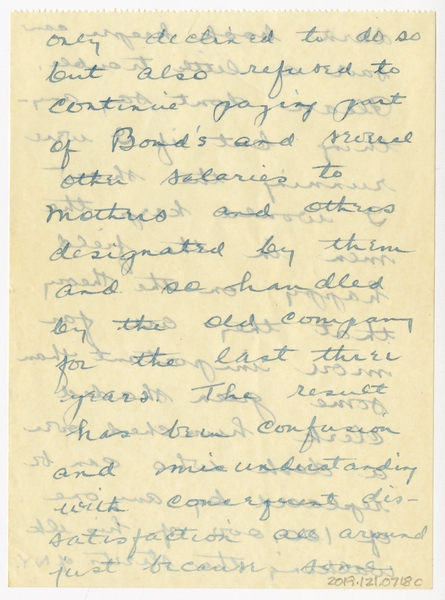 only declined to do so
but also refused to
continue paying part
of Bond's and several
other salaries to
mothers and others
designated by them
and so handled
by the old company
for the last three
years. The result
has been confusion
and misunderstanding
with consequent dis-
satisfaction all around
just because some
2019.121.07180